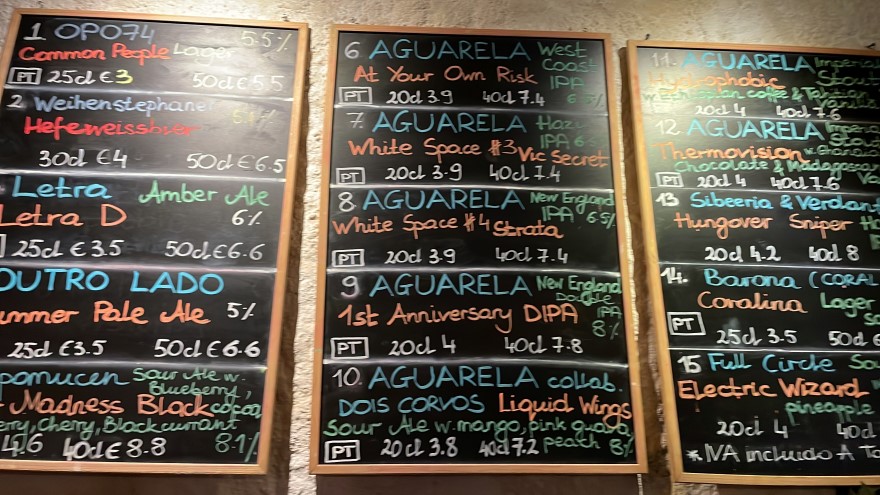 1 OPO74 5.5%
Common People Lager
PT 25cl €3 50cl €5.5
2 Weihenstephaner
Hefeweissbier
30cl €4 50cl €6.5
Letra Amber Ale
Letra D 6%
25cl €3.5 50cl €6.6
OUTRO LADO
ummer Pale Ale 5%
25cl €3.5 50cl €6.6
pomucen Sour Ale w.
Blueberry,
Madness Black cocoa,
erry, Cherry, Blackcurrant
4.6 40cl €8.8 8.1%
6 AGUARELA West
Coast
At Your Own Risk IPA
PT 20cl 3.9 40cl 7.4
7. AGUARELA Hazy
IPA 6
White Space #3 Vic Secret
PT 20cl 3.9 40cl 7.4
8 AGUARELA New England
IPA 6.5%
White Space #4 Strata
PT 20cl 3.9 40cl 7.4
9 AGUARELA New England
Double
IPA
1st Anniversary DIPA 8%
PT 20cl 4 40cl 7.8
10. AGUARELA collab.
DOIS CORVOS Liquid Wings
Sour Ale w. mango, pink guava,
peach 8%
PT 20cl 3.8 40cl 7.2
11. AGUARELA Imperial
Stout
Hydrophobic
w. Ethiopian coffee & Tahitian
Vanilla
20cl 4 40cl 7.6
12. AGUARELA Imperial
Stout
Thermovision
Chocolate & Madagascar
PT 20cl 4 40cl 7.6 Va
13 Sibeeria & Verdant
Hungover Sniper
20cl 4.2 40cl 8
14. Barona (CORAL
Coralina Lager
PT 25cl 3.5 50cl 6
15 Full Circle Sou
Electric Wizard
pineapple
20cl 4 40cl
* IVA incluído À Ta